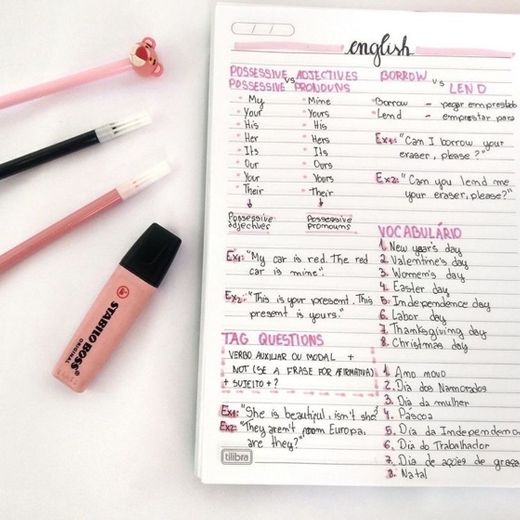 english
POSSESSIVE ADJECTIVES
vs
POSSESSIVE PRONOUNS
My Mine
Your Yours
His His
Her Hers
Its Its
Our Ours
Your Yours
Their Their
Possessive adjectives
Possessive pronouns
Ex1: "My car is red. The red
car is mine".
Ex2: "This is your present. This
present is yours."
TAG QUESTIONS
VERBO AUXILIAR OU MODAL +
NOT (SE A FRASE FOR AFIRMATIVA)
+ SUJEITO + ?
Ex1: "She is beautiful, isn't she?
Ex2: "They aren't from Europa,
are they?"
tilibra
BORROW vs LEND
Borrow - pegar emprestado
Lend - emprestar para
Ex1: "Can I borrow your
eraser, please?"
Ex2: "Can you lend me
your eraser, please?"
VOCABULÁRIO
1. New year's day
2. Valentine's day
3. Women's day
4. Easter day
5. Independence day
6. Labor day
7. Thanksgiving day
8. Christmas day
1. Ano novo
2. Dia dos Namorados
3. Dia da mulher
4. Páscoa
5. Dia da Independenc
6. Dia do Trabalhador
7. Dia de ações de graça
8. Natal
STABILO BOSS
ORIGINAL